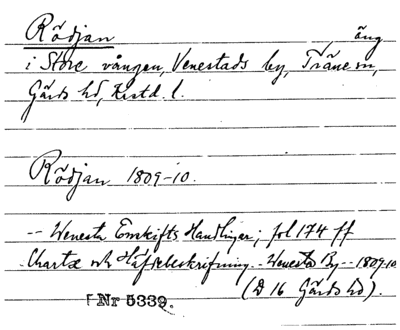 Rödjan äng
i Store vången, Venestads by, Träne sn,
Gärds hd, Krstd. l.
Rödjan 1809-10.
-- Wenesta Enskifts Handlingar; fol 174 ff
Charta och Häfdebeskrifning -- Wenesta By -- 1809-10
(D 16 Gärds hd).
Nr 5339.